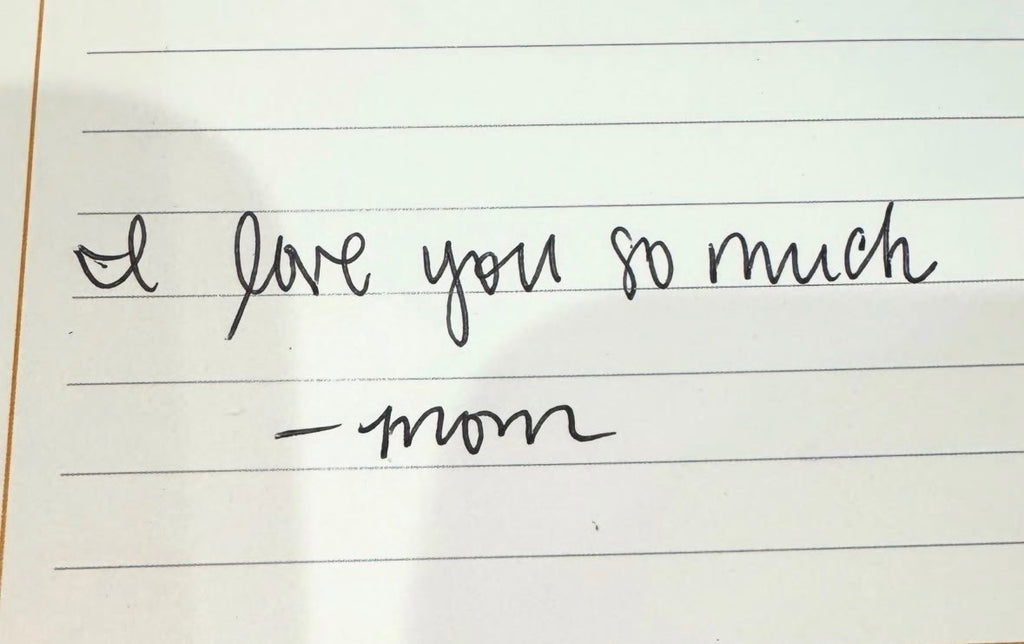 I love you so much
- mom